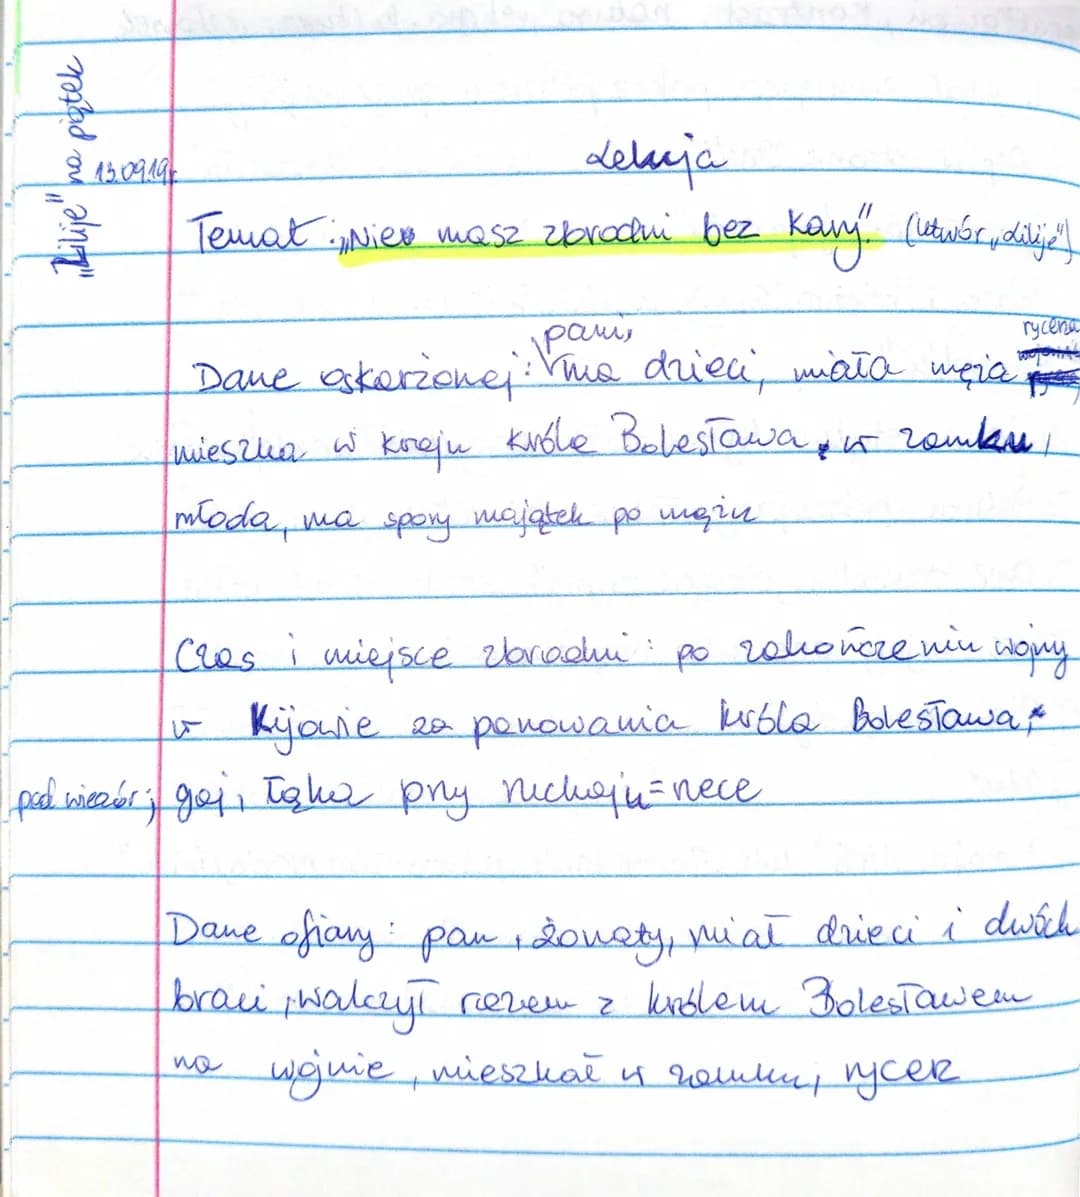 "Lilije" na piątek
13.09.19r.
Lekcja
Temat: „Nie masz zbrodni bez kary". (utwór „Lilije")
pani,
rycerza
Dane oskarżonej: ma dzieci, miała męża
mieszka w kraju króla Bolesława, w zamku,
młoda, ma spory majątek po mężu
Czas i miejsce zbrodni: po zakończeniu wojny
w Kijowie za panowania króla Bolesława,
pod wieczór; gaj, łąka przy ruchaju=rzece
Dane ofiary: pan, żonaty, miał dzieci i dwóch
braci, walczył razem z królem Bolesławem
na wojnie, mieszkał w zamku, rycerz